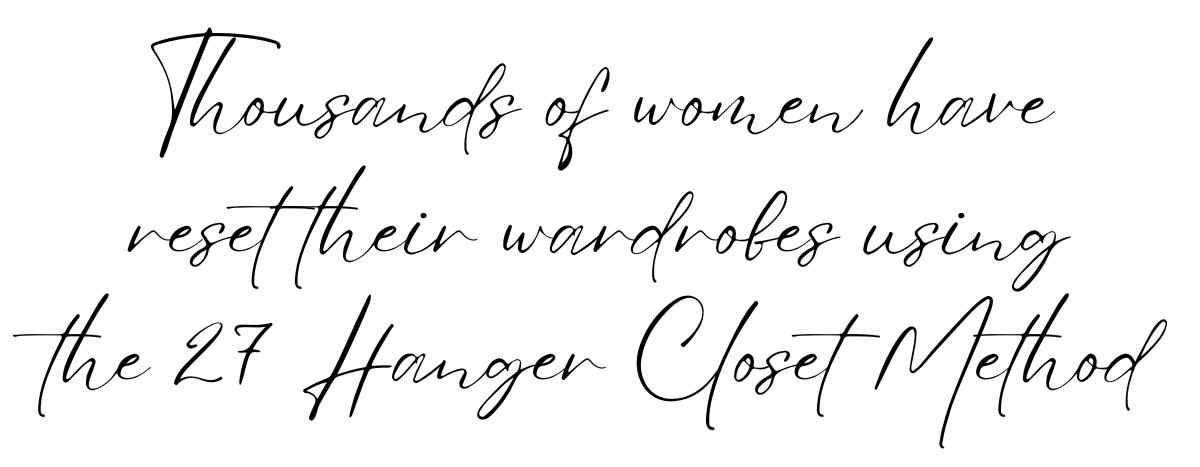 Thousands of women have
reset their wardrobes using
the 27 Hanger Closet Method